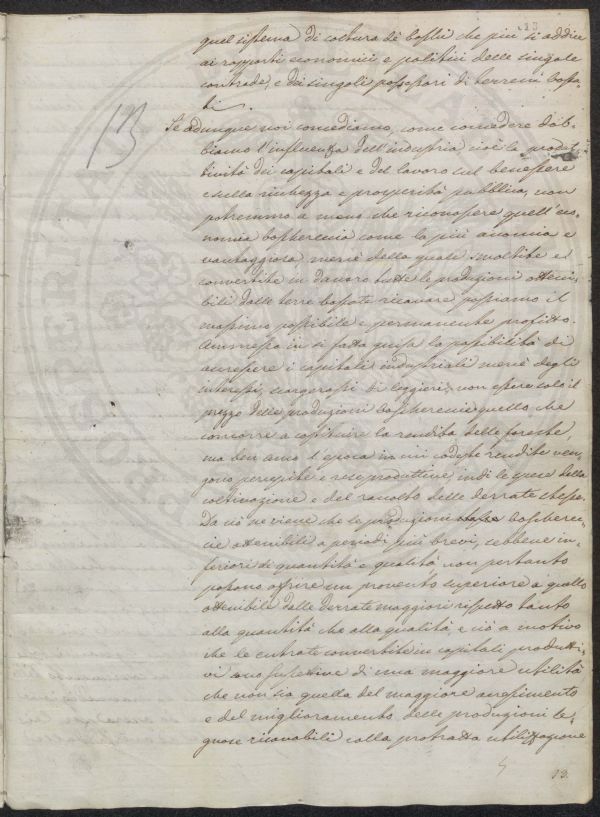 13
quel sistema di coltura de' boschi che più si addice
ai rapporti economici e politici delle singole
contrade, e dei singoli possessori di terreni bosca-
ti.
13
Se adunque noi concediamo, come concedere dob-
biamo l'influenza dell'industria cioè la produt-
tività dei capitali e del lavoro sul benessere
e sulla ricchezza e prosperità pubblica, non
potremmo a meno che riconoscere quell'eco-
nomia boschereccia come la più e
vantaggiosa mercè della quale smaltite e
convertite in danaro tutte le produzioni otteni-
bili dalle terre boscate ricavare possiamo il
massimo possibile e permanente profitto.
Ammessa in sì fatta guisa la possibilità di
accrescere i capitali industriali mercè degli
interessi, scorgerassi di leggieri, non essere solo il
prezzo delle produzioni boschereccie quello che
concorre a costituire la rendita delle foreste,
ma ben anco l'epoca in cui codeste rendite ven-
gono percepite e rese produttive, indi le spese della
coltivazione e del raccolto delle derrate stesse.
Da ciò ne viene che le produzioni boscherec-
cie ottenibili a periodi più brevi, sebbene in-
feriori di quantità e qualità non pertanto
possono offrire un provento superiore a quello
ottenibile dalle derrate maggiori rispetto tanto
alla quantità che alla qualità, e ciò a motivo
che le entrate convertite in capitali produtti-
vi suscettive di una maggiore utilità
che non sia quella del maggiore accrescimento
e del miglioramento delle produzioni le-
gnose ricavabili colla protratta utilizzazione
13.
PROSPERITÀ